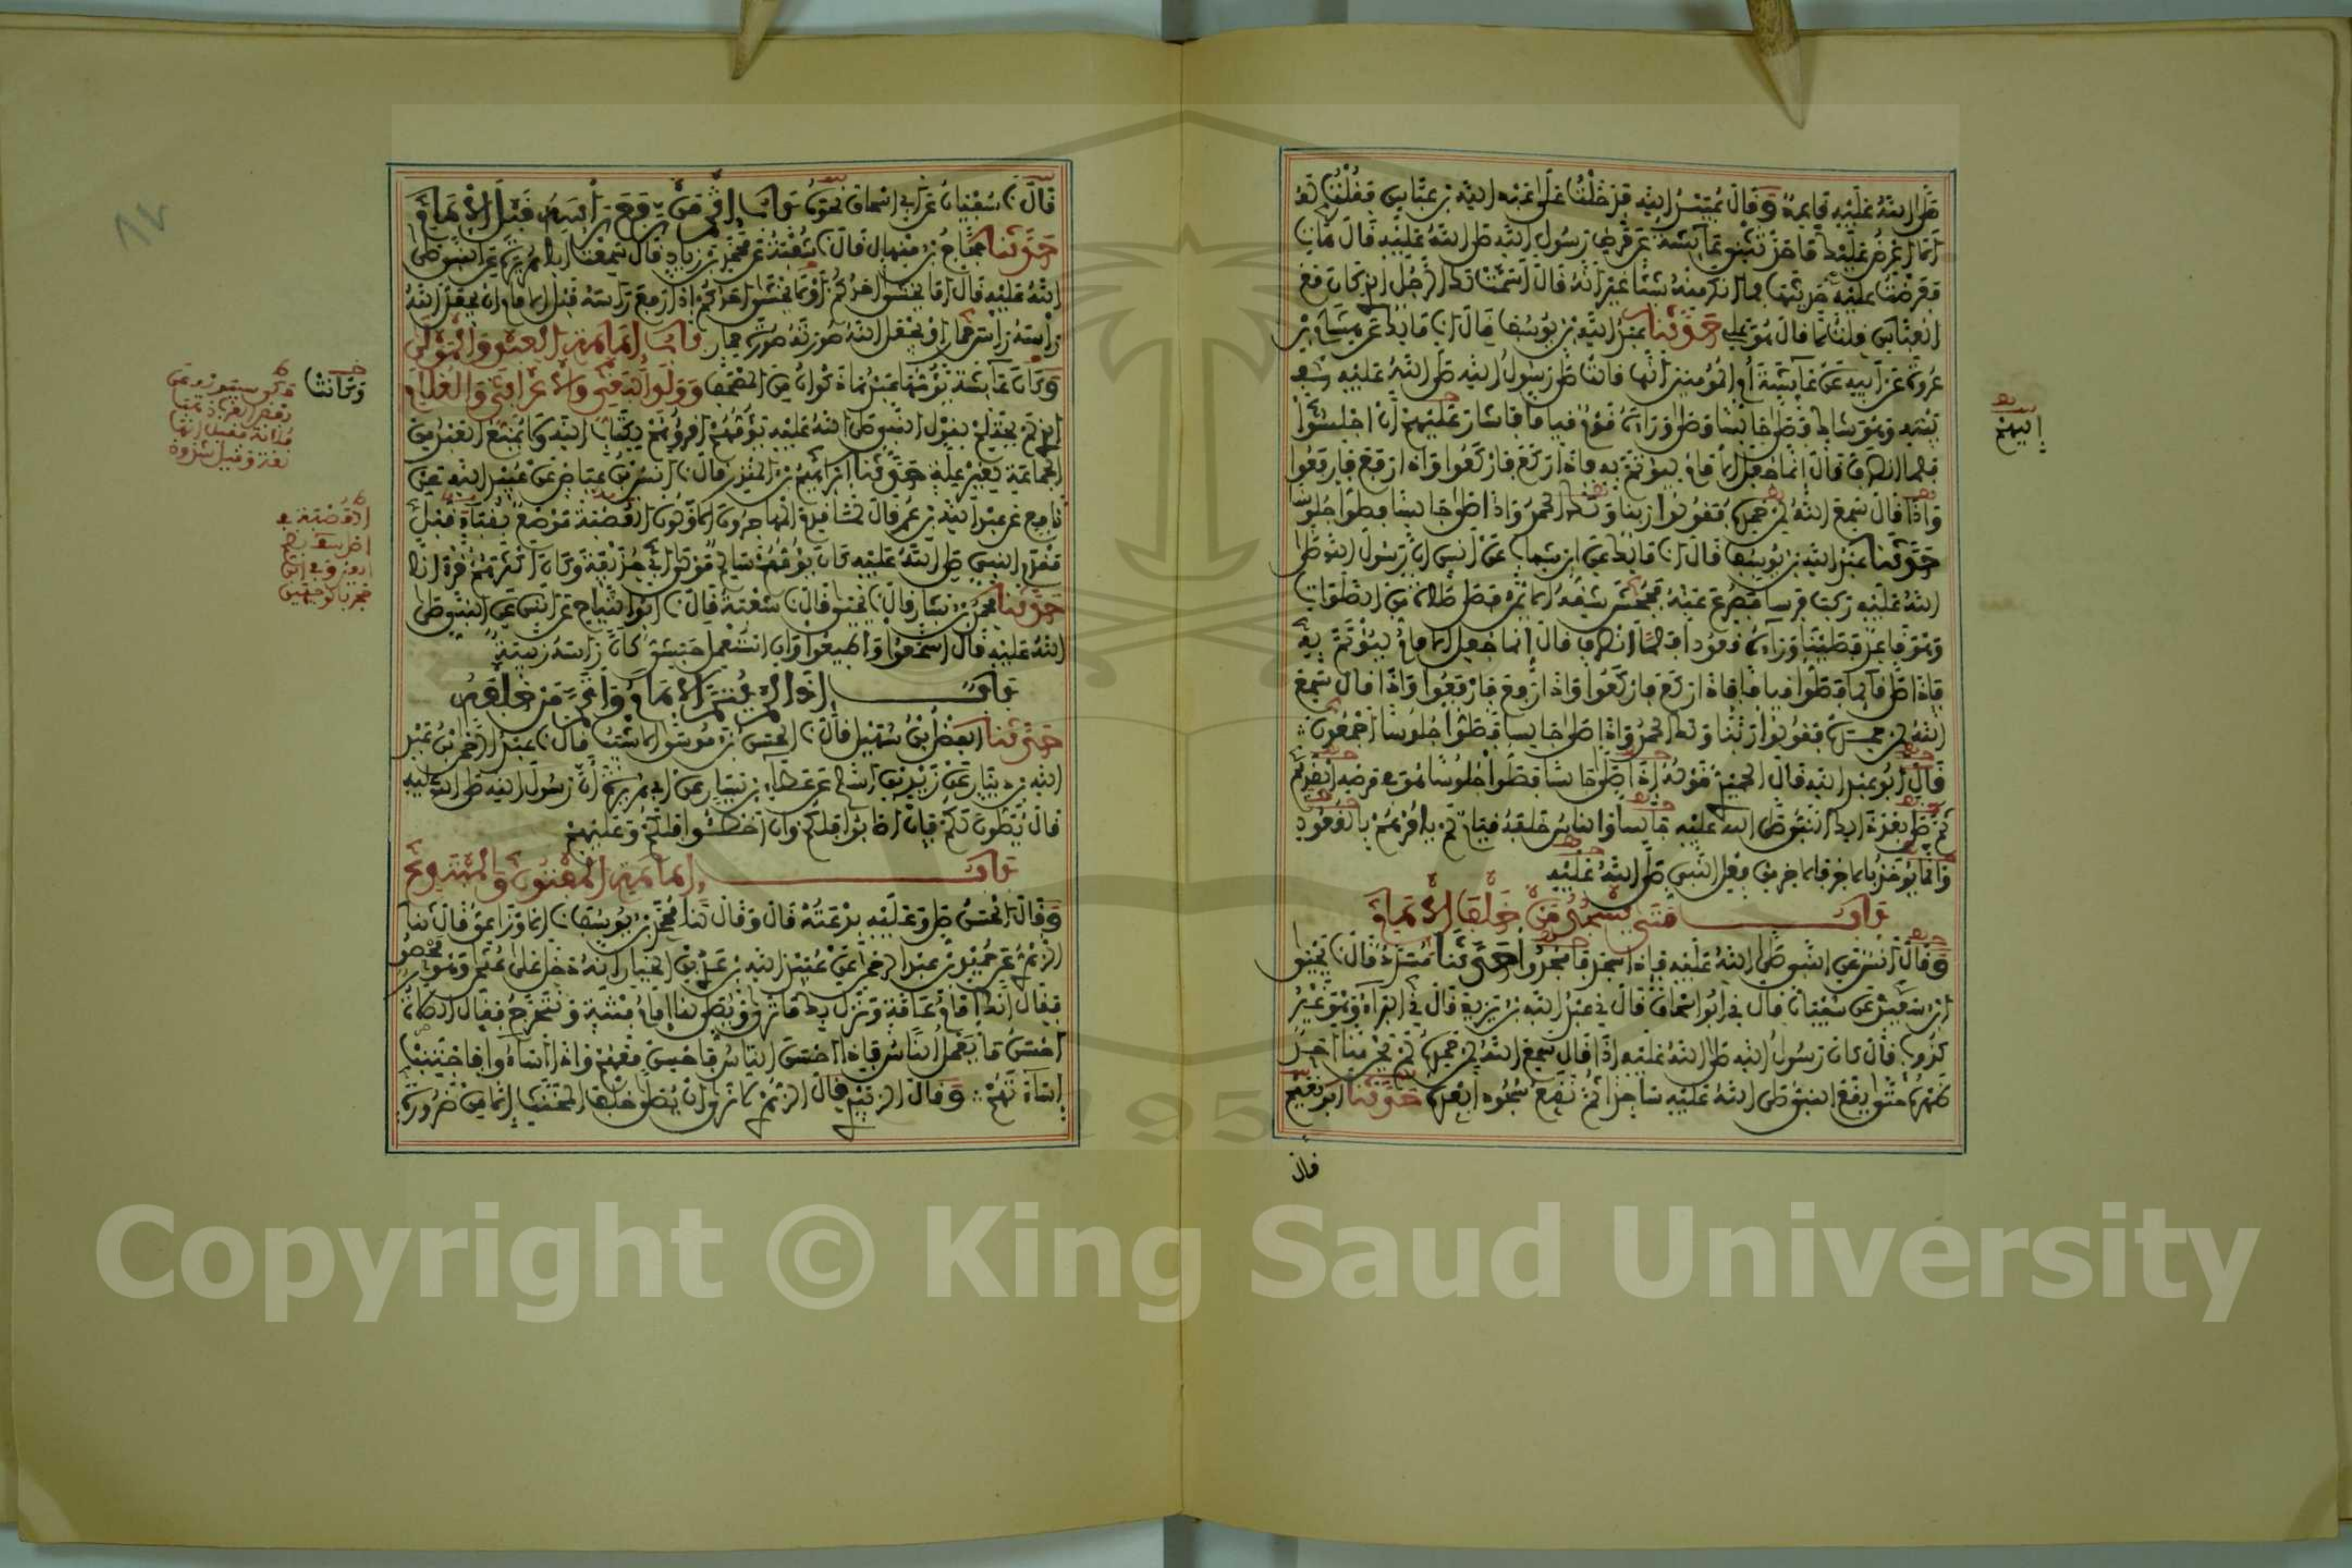 صلى الله عليه قايمة وقال عبيد الله فدخلت على عبد الله بن عباس فقلت له
ألا أعرض عليك ما حدثتني عائشة عن مرض رسول الله صلى الله عليه قال هات
فعرضت عليه حديثها فما أنكر منه شيئا غير أنه قال أسمت لك الرجل الذي كان مع
العباس قلت لا قال هو علي حدثنا عبد الله بن يوسف قال انا مالك عن هشام بن
عروة عن أبيه عن عائشة أم المومنين أنها قالت صلى رسول الله صلى الله عليه في
بيته وهو شاك فصلى جالسا وصلى وراءه قوم قياما فأشار عليهم أن اجلسوا
إليهم
فلما انصرف قال إنما جعل الإمام ليوتم به فإذا ركع فاركعوا وإذا رفع فارفعوا
وإذا قال سمع الله لمن حمده فقولوا ربنا ولك الحمد وإذا صلى جالسا فصلوا جلوسا
حدثنا عبد الله بن يوسف قال انا مالك عن ابن شهاب عن أنس أن رسول الله صلى
الله عليه ركب فرسا فصرع عنه فجحش شقه الأيمن فصلى صلاة من الصلوات
وهو قاعد فصلينا وراءه قعودا فلما انصرف قال إنما جعل الإمام ليوتم به
فإذا صلى قايما فصلوا قياما فإذا ركع فاركعوا وإذا رفع فارفعوا وإذا قال سمع
الله لمن حمده فقولوا ربنا ولك الحمد وإذا صلى جالسا فصلوا جلوسا أجمعون
قال أبو عبد الله قال الحميدي قوله إذا صلى جالسا فصلوا جلوسا هو في مرضه القديم
ثم صلى بعد ذلك النبي صلى الله عليه جالسا والناس خلفه قيام لم يامرهم بالقعود
وإنما يوخذ بالآخر فالآخر من فعل النبي صلى الله عليه
باب متى يسجد من خلف الإمام
وقال أنس عن النبي صلى الله عليه فإذا سجد فاسجدوا حدثنا مسدد قال نا يحيى
ابن سعيد عن سفيان قال ني أبو إسحاق قال ني عبد الله بن يزيد قال ني البراء وهو غير
كذوب قال كان رسول الله صلى الله عليه إذا قال سمع الله لمن حمده لم يحن منا أحد
ظهره حتى يقع النبي صلى الله عليه ساجدا ثم نقع سجودا بعده حدثنا أبو نعيم
قال
قال نا سفيان عن أبي إسحاق نحوه باب إثم من رفع رأسه قبل الإمام
حدثنا حجاج بن منهال قال نا شعبة عن محمد بن زياد قال سمعت أبا هريرة عن النبي صلى
الله عليه قال أما يخشى أحدكم أو ألا يخشى أحدكم إذا رفع رأسه قبل الإمام أن يجعل الله
رأسه رأس حمار أو يجعل الله صورته صورة حمار باب إمامة العبد والمولى
وكانت
وكان عائشة يؤمها عبدها ذكوان من المصحف وولد البغي والأعرابي والغلام
الذي لم يحتلم لقول النبي صلى الله عليه يؤمهم أقرؤهم لكتاب الله ولا يمنع العبد من
الجماعة بغير علة حدثنا إبراهيم بن المنذر قال نا أنس بن عياض عن عبيد الله عن
نافع عن عبد الله بن عمر قال لما قدم المهاجرون الأولون العصبة موضع بقباء قبل
مقدم النبي صلى الله عليه كان يؤمهم سالم مولى أبي حذيفة وكان أكثرهم قرءانا
حدثنا محمد بن بشار قال نا يحيى قال نا شعبة قال ني أبو التياح عن أنس عن النبي صلى
الله عليه قال اسمعوا وأطيعوا وإن استعمل حبشي كأن رأسه زبيبة
باب إذا لم يتم الإمام وأتم من خلفه
حدثنا الفضل بن سهيل قال نا الحسن بن موسى الأشيب قال نا عبد الرحمن بن عبد
الله بن دينار عن زيد بن أسلم عن عطاء بن يسار عن أبي هريرة أن رسول الله صلى الله عليه
قال يصلون لكم فإن أصابوا فلكم وإن أخطئوا فلكم وعليهم
باب إمامة المفتون والمبتدع
وقال الحسن صل وعليه بدعته قال وقال لنا محمد بن يوسف نا الأوزاعي قال نا
الزهري عن حميد بن عبد الرحمن عن عبيد الله بن عدي بن الخيار أنه دخل على عثمان وهو محصور
فقال إنك إمام عامة ونزل بك ما ترى ويصلي لنا إمام فتنة ونتحرج فقال الصلاة
أحسن ما يعمل الناس فإذا أحسن الناس فأحسن معهم وإذا أساءوا فاجتنب
إساءتهم وقال الزبيدي قال الزهري لا نرى أن يصلى خلف المخنث إلا من ضرورة